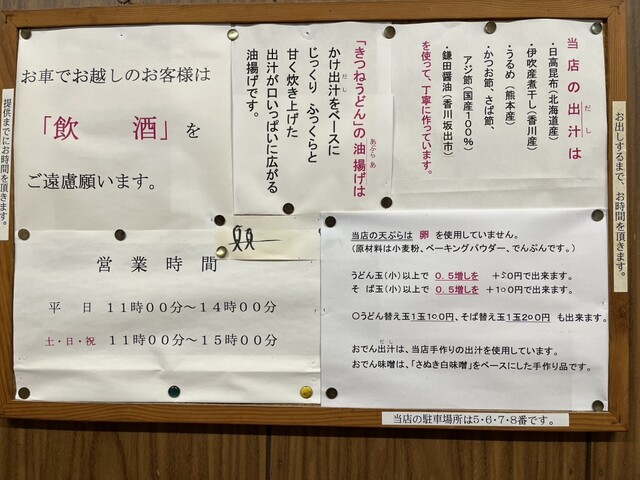 お車でお越しのお客様は
「飲　酒」を
ご遠慮願います。
提供までにお時間を頂きます。
「きつねうどん」の油揚げは
あぶらあ
かけ出汁をベースに
だし
じっくり ふっくらと
甘く炊き上げた
出汁が口いっぱいに広がる
油揚げです。
当店の出汁は
だし
・日高昆布（北海道産）
・伊吹産煮干し（香川産）
・うるめ（熊本産）
・かつお節、さば節、
アジ節（国産１００％）
・鎌田醤油（香川坂出市）
を使って、丁寧に作っています。
お出しするまで、お時間を頂きます。
営業時間
平　日　１１時００分～１４時００分
土・日・祝　１１時００分～１５時００分
当店の天ぷらは 卵 を使用していません。
（原材料は小麦粉、ベーキングパウダー、でんぷんです。）
うどん玉（小）以上で ０．５増しを ＋　０円で出来ます。
そば玉（小）以上で ０．５増しを ＋１００円で出来ます。
〇うどん替え玉１玉１００円、そば替え玉１玉２００円 も出来ます。
だし
おでん出汁は、当店手作りの出汁を使用しています。
おでん味噌は、「さぬき白味噌」をベースにした手作り品です。
当店の駐車場所は５・６・７・８番です。